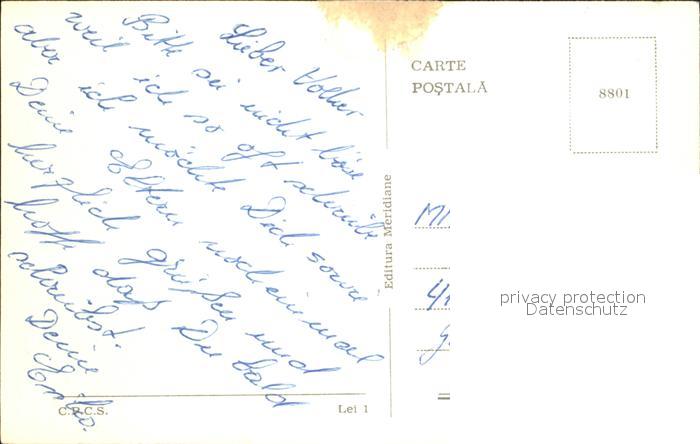 Lieber Volker
Bitte sei nicht böse
weil ich so oft schreibe
aber ich möchte Dich sowie
Deine Eltern noch einmal
herzlich grüßen und
hoffe daß Du bald
schreibst.
Deine
CARTE
POȘTALĂ
8801
Editura Meridiane
C.P.C.S.
Lei 1
privacy protection
Datenschutz